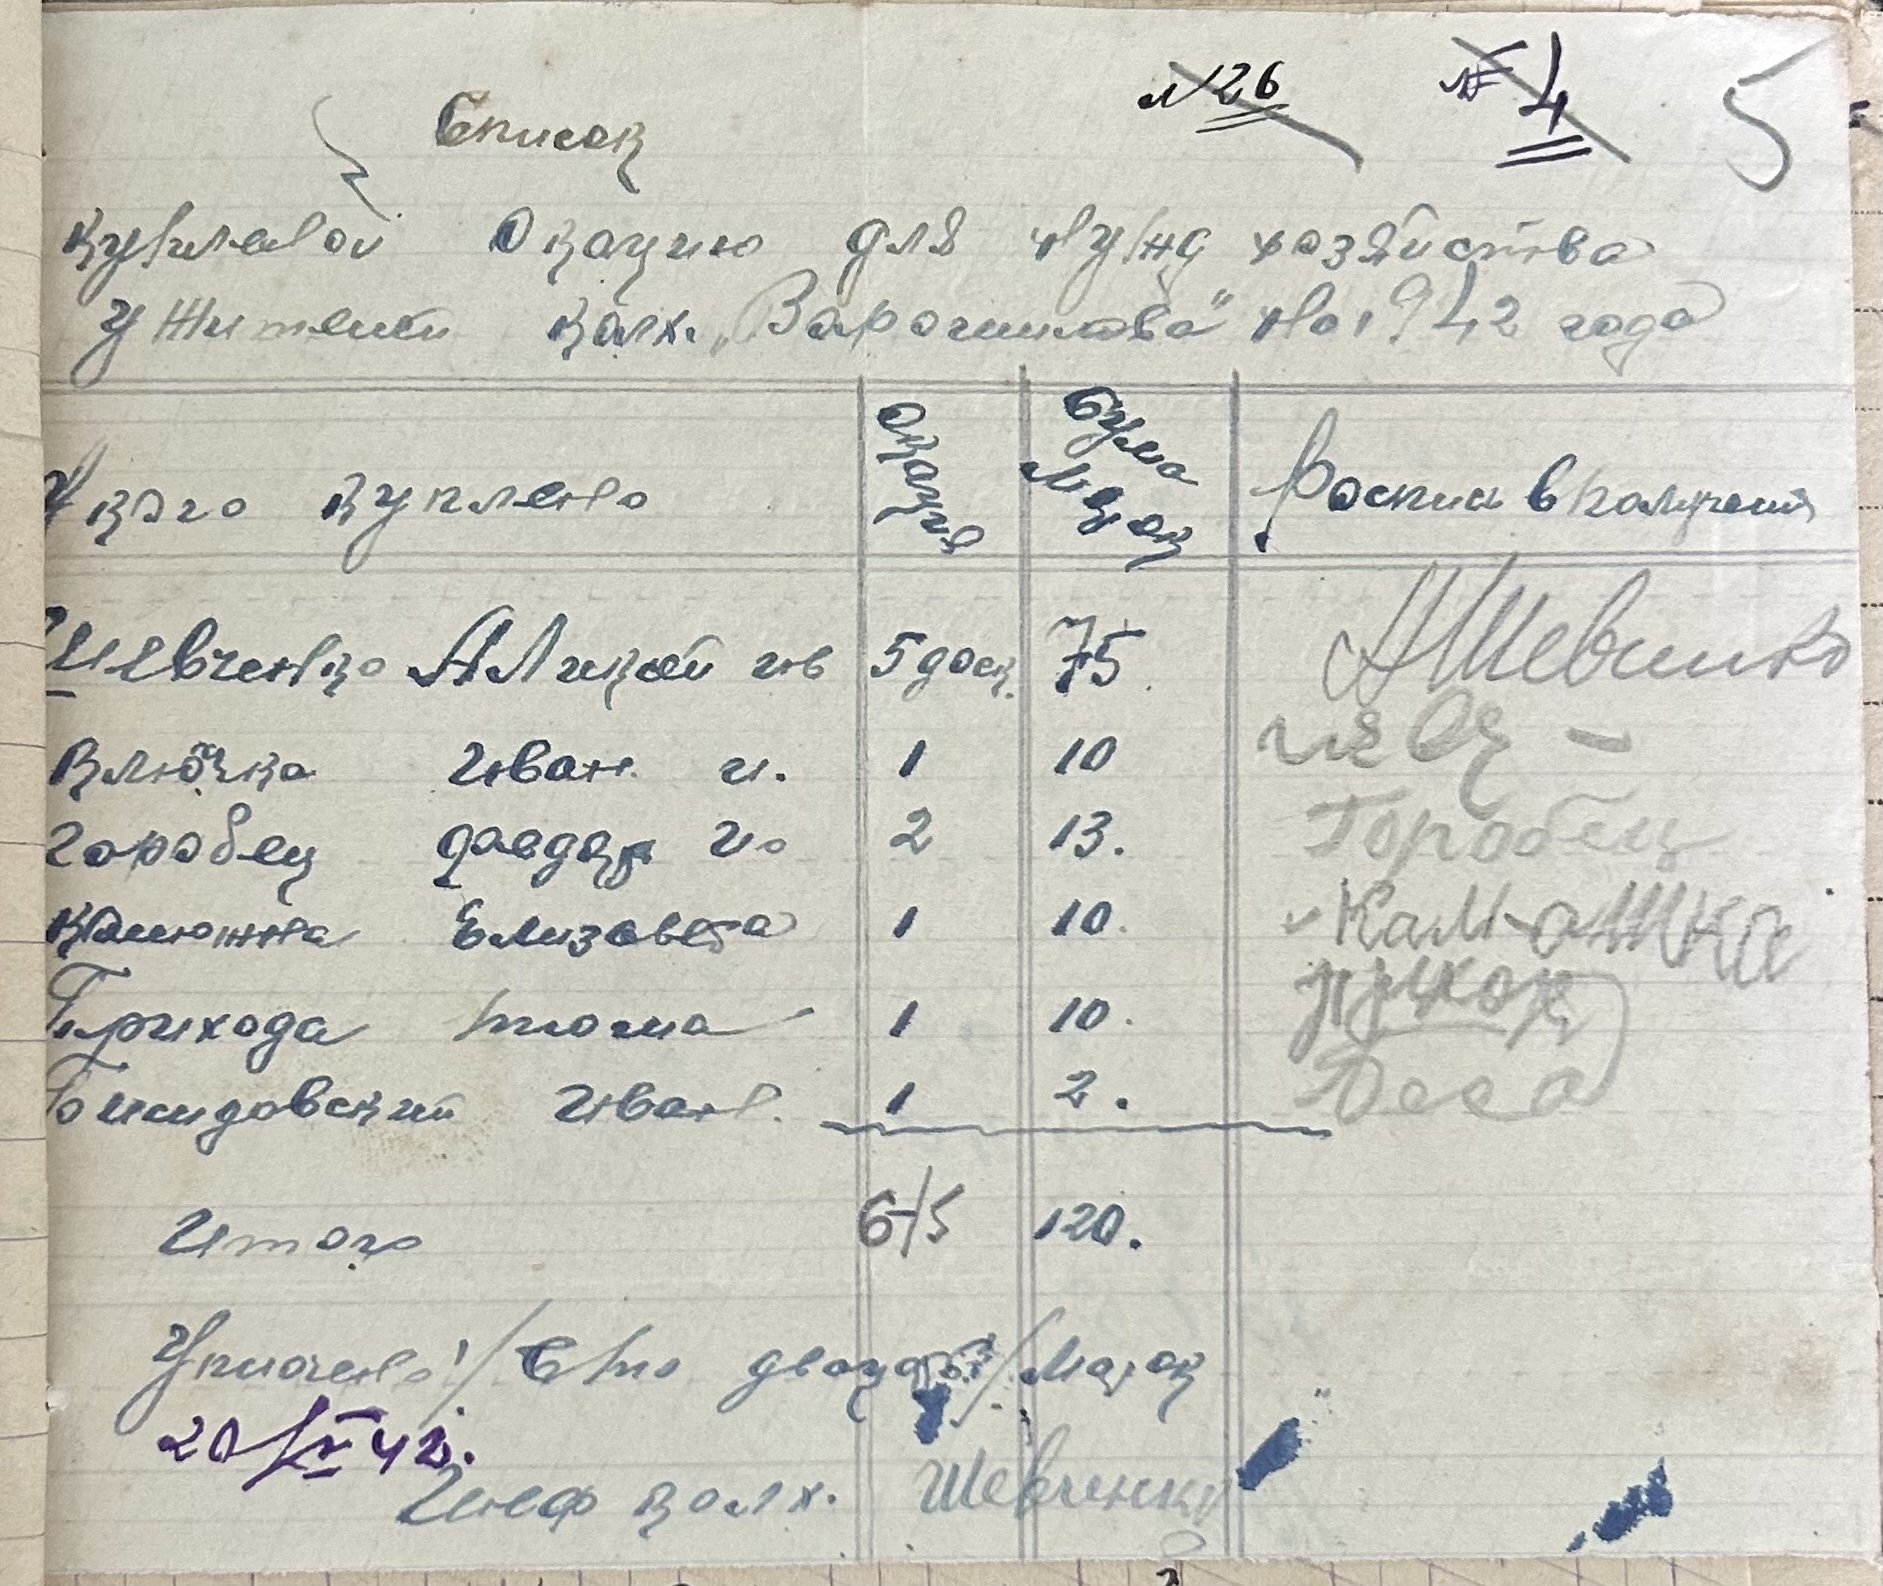 № 26 № 4 5
Список
купленой Окацию для нужд хозяйства
у жителей колх. „Ворошилова" на 1942 года
У кого куплено Окация Сума Марок Роспис в получении
Шевченко Алексей 5 доск. 75 АШевченко
Ключка Иван И. 1 10
Горобец 2 13. Горобец
Елизовета 1 10.
Прихода Тома 1 10.
Иван 1 2.
Итого 6/5 120.
Уплочено /Сто двадцать/ Марок
20/IV 42.
Шеф колх. Шевченко